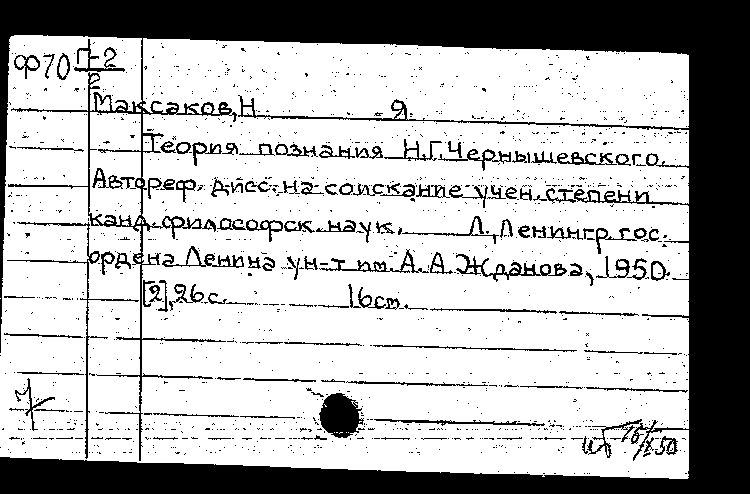 Ф70 Г-2
2
Максаков, Н. Я.
Теория познания Н.Г.Чернышевского.
Автореф. дисс. на соискание учен. степени
канд. философск. наук. Л., Ленингр. гос.
ордена Ленина ун-т им. А. А. Жданова, 1950.
[2], 26 с. 16 см.